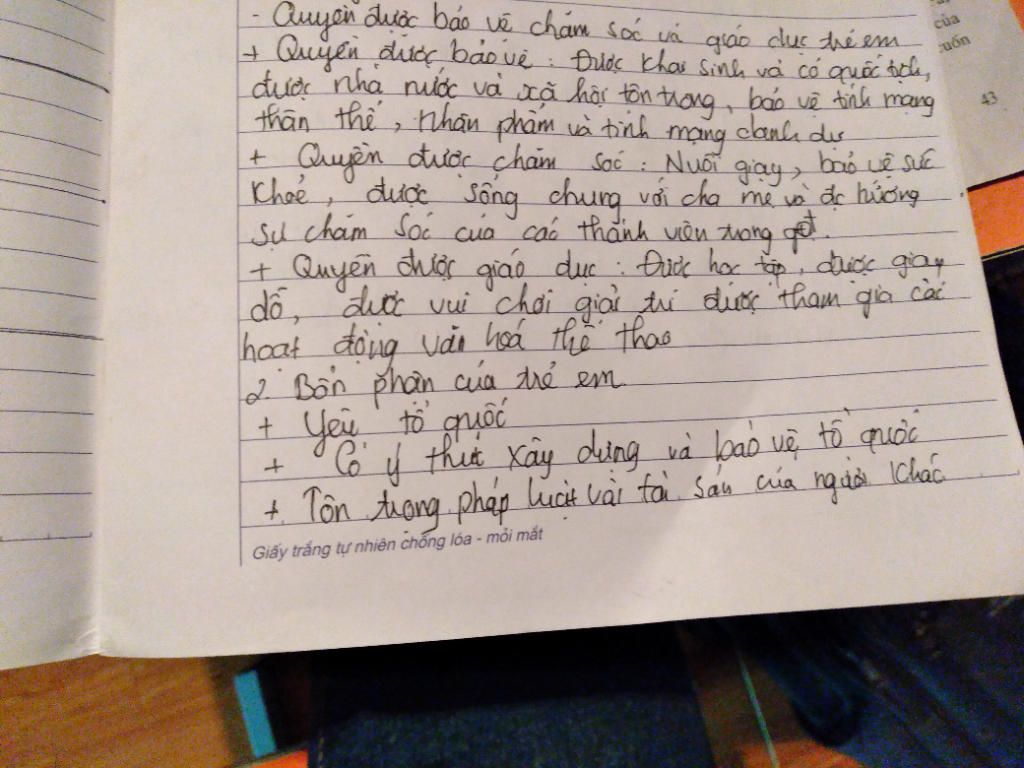 - Quyền được bảo vệ chăm sóc và giáo dục trẻ em
+ Quyền được bảo vệ : Được khai sinh và có quốc tịch,
được nhà nước và xã hội tôn trọng, bảo vệ tính mạng
thân thể, nhân phẩm và tính mạng danh dự
+ Quyền được chăm sóc : Nuôi giạy, bảo vệ sức
khoẻ, được sống chung với cha mẹ và đc hưởng
sự chăm sóc của các thành viên trong gđ.
+ Quyền được giáo dục : Được học tập, được giạy
dỗ, được vui chơi giải trí được tham gia các
hoạt động văn hoá thể thao
2. Bổn phận của trẻ em
+ Yêu tổ quốc
+ Có ý thức xây dựng và bảo vệ tổ quốc
+ Tôn trọng pháp luật và tài sản của người khác
Giấy trắng tự nhiên chống lóa - mỏi mắt
của
cuốn
43